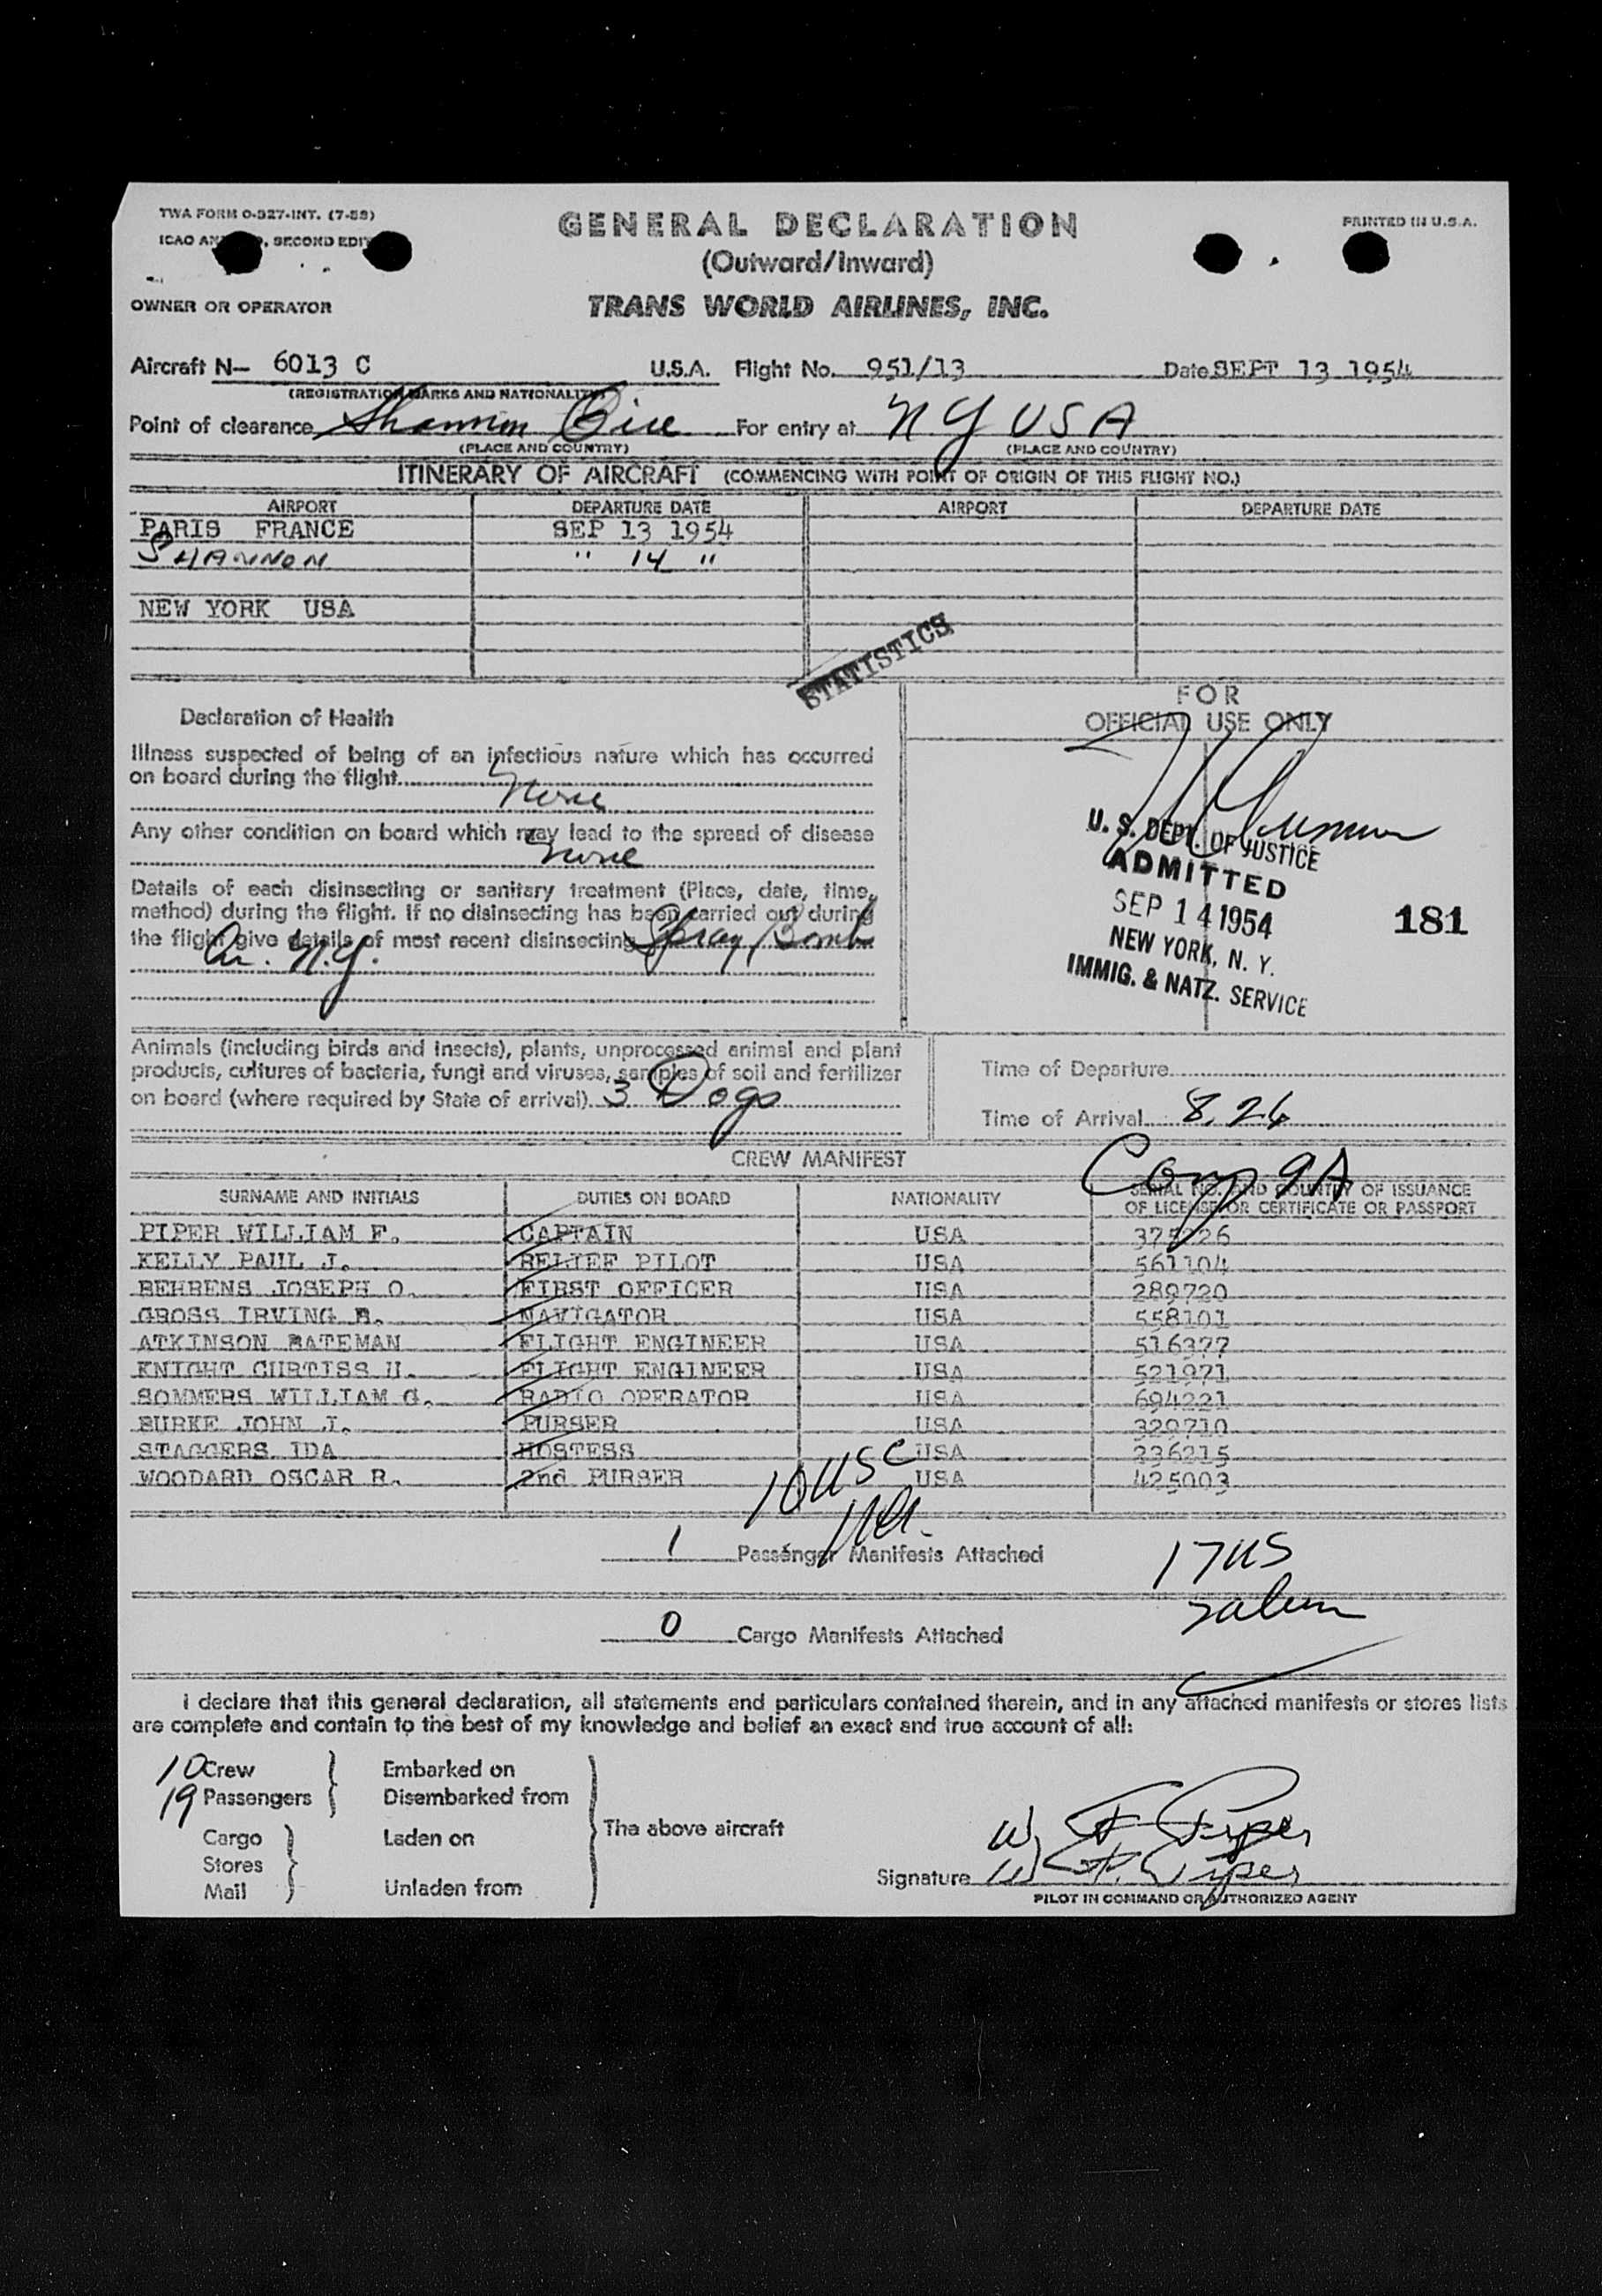 TWA FORM O-327-INT. (7-53)
PRINTED IN U.S.A.
GENERAL DECLARATION
(Outward/Inward)
OWNER OR OPERATOR
TRANS WORLD AIRLINES, INC.
Aircraft N— 6013 C U.S.A. Flight No. 951/13 Date SEPT 13 1954
(REGISTRATION MARKS AND NATIONALITY)
Point of clearance Shannon Eire For entry at NY USA
(PLACE AND COUNTRY) (PLACE AND COUNTRY)
ITINERARY OF AIRCRAFT (COMMENCING WITH POINT OF ORIGIN OF THIS FLIGHT NO.)
AIRPORT DEPARTURE DATE AIRPORT DEPARTURE DATE
PARIS FRANCE SEP 13 1954
SHANNON " 14 "
NEW YORK USA
STATISTICS
FOR
OFFICIAL USE ONLY
Declaration of Health
Illness suspected of being of an infectious nature which has occurred
on board during the flight
None
Any other condition on board which may lead to the spread of disease
None
Details of each disinsecting or sanitary treatment (Place, date, time,
method) during the flight. If no disinsecting has been carried out during
the flight give details of most recent disinsecting Spray Bomb
Ar. N.Y.
U. S. DEPT. OF JUSTICE
ADMITTED
SEP 14 1954
NEW YORK, N. Y.
IMMIG. & NATZ. SERVICE
181
Animals (including birds and insects), plants, unprocessed animal and plant
products, cultures of bacteria, fungi and viruses, samples of soil and fertilizer
on board (where required by State of arrival) 3 Dogs
Time of Departure
Time of Arrival 8.26
CREW MANIFEST
Comp 9A
SURNAME AND INITIALS DUTIES ON BOARD NATIONALITY SERIAL NO. AND COUNTRY OF ISSUANCE
OF LICENSE OR CERTIFICATE OR PASSPORT
PIPER WILLIAM F. CAPTAIN USA
KELLY PAUL J. RELIEF PILOT USA 561104
BEHRENS JOSEPH O. FIRST OFFICER USA 289720
GROSS IRVING B. NAVIGATOR USA 558101
ATKINSON BATEMAN FLIGHT ENGINEER USA 516377
KNIGHT CURTISS H. FLIGHT ENGINEER USA 521971
SOMMERS WILLIAM G. RADIO OPERATOR USA 694221
BURKE JOHN J. PURSER USA 329710
STAGGERS IDA HOSTESS USA 236215
WOODARD OSCAR R. 2nd PURSER USA 425003
10 USC
1 Passenger Manifests Attached
17 US
0 Cargo Manifests Attached
I declare that this general declaration, all statements and particulars contained therein, and in any attached manifests or stores lists
are complete and contain to the best of my knowledge and belief an exact and true account of all:
10 Crew Embarked on
19 Passengers Disembarked from
The above aircraft
Cargo Laden on
Stores
Mail Unladen from
W F Piper
Signature W F. Piper
PILOT IN COMMAND OR AUTHORIZED AGENT